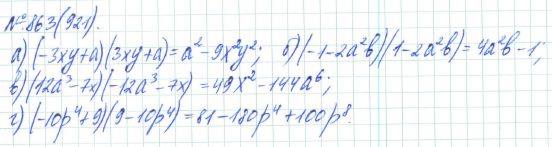 №863(921).
а) (-3xy+a)(3xy+a)=a²-9x²y²; б) (-1-2a²b)(1-2a²b)=4a²b-1;
в) (12a³-7x)(-12a³-7x)=49x²-144a⁶;
г) (-10p⁴+9)(9-10p⁴)=81-180p⁴+100p⁸.